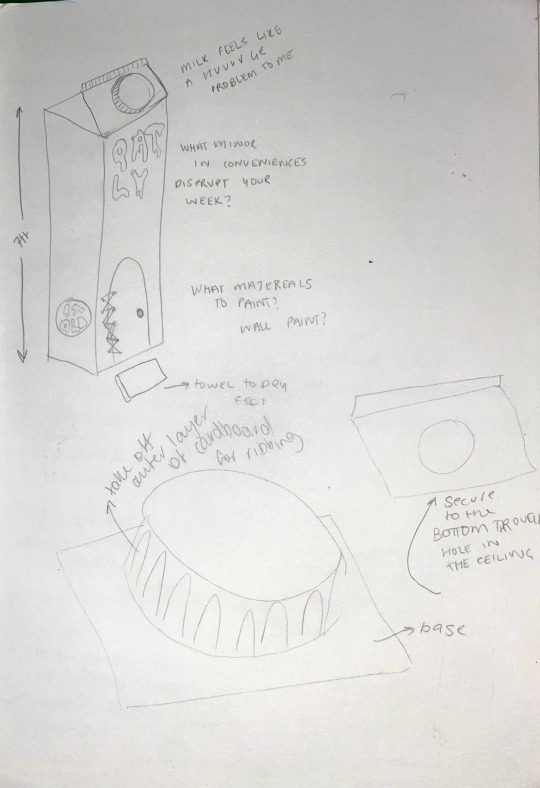 MILK FEELS LIKE
A HUVVV GE
PROBLEM TO ME
OAT
LY
WHAT MINOR
IN CONVENIENCES
DISPRUPT YOUR
WEEK?
7ft
WHAT MATEREALS
TO PAINT?
WALL PAINT?
towel to Dry
FEET
take off
outer layer
of cardboard
for ribbing
secure
to the
BOTTOM THROUGH
HOLE IN
THE CEILING
base